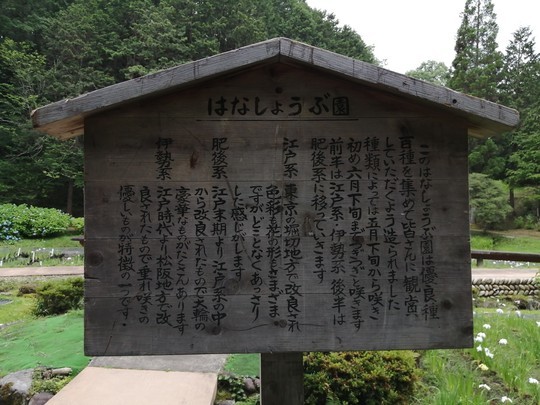 はなしょうぶ園
このはなしょうぶ園は優良種
百種を集めて皆さんに観賞
していただくよう造られました
種類によっては五月下旬から咲き
初め六月下旬までつぎつぎと咲きます
前半は江戸系、伊勢系、後半は
肥後系に移っていきます
江戸系 東京の堀切地方で改良され
色彩も花の形もさまざま
ですがどことなくあっさり
した感じがします
肥後系 江戸末期より江戸系の中
から改良されたもので大輪の
豪華なものがたくさんあります
伊勢系 江戸時代より松阪地方で改
良されたもので垂れ咲きの
優しいものが特徴の一つです。